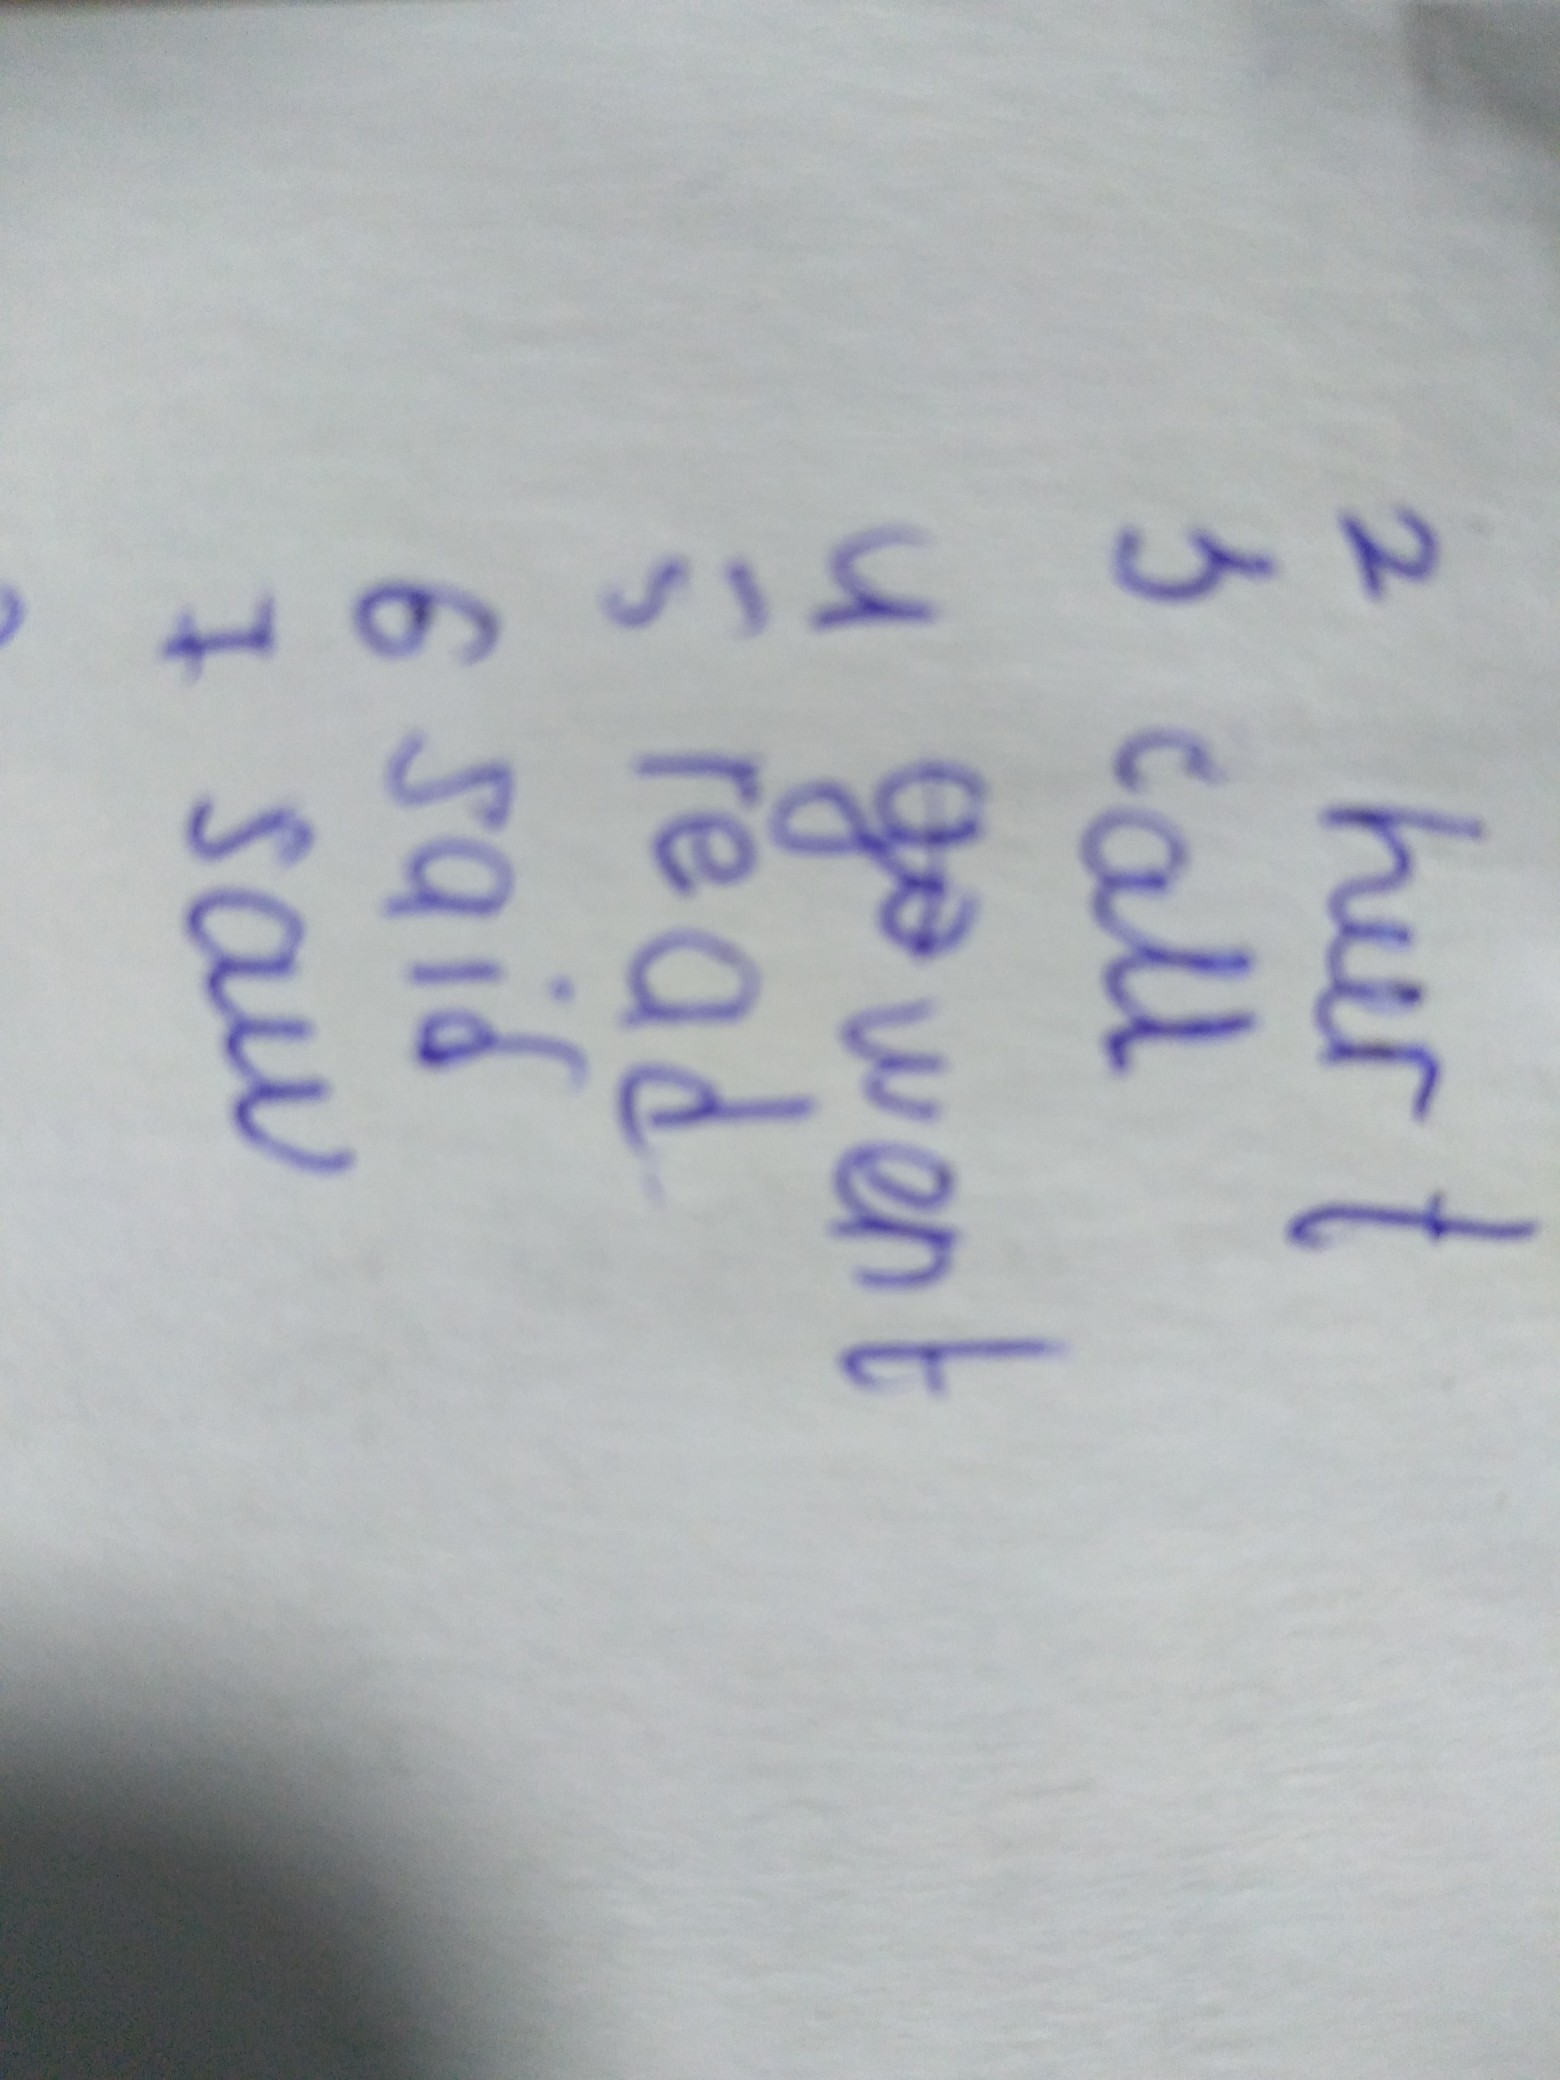 2 hurt
3 call
4 went
5 read
6 said
7 saw